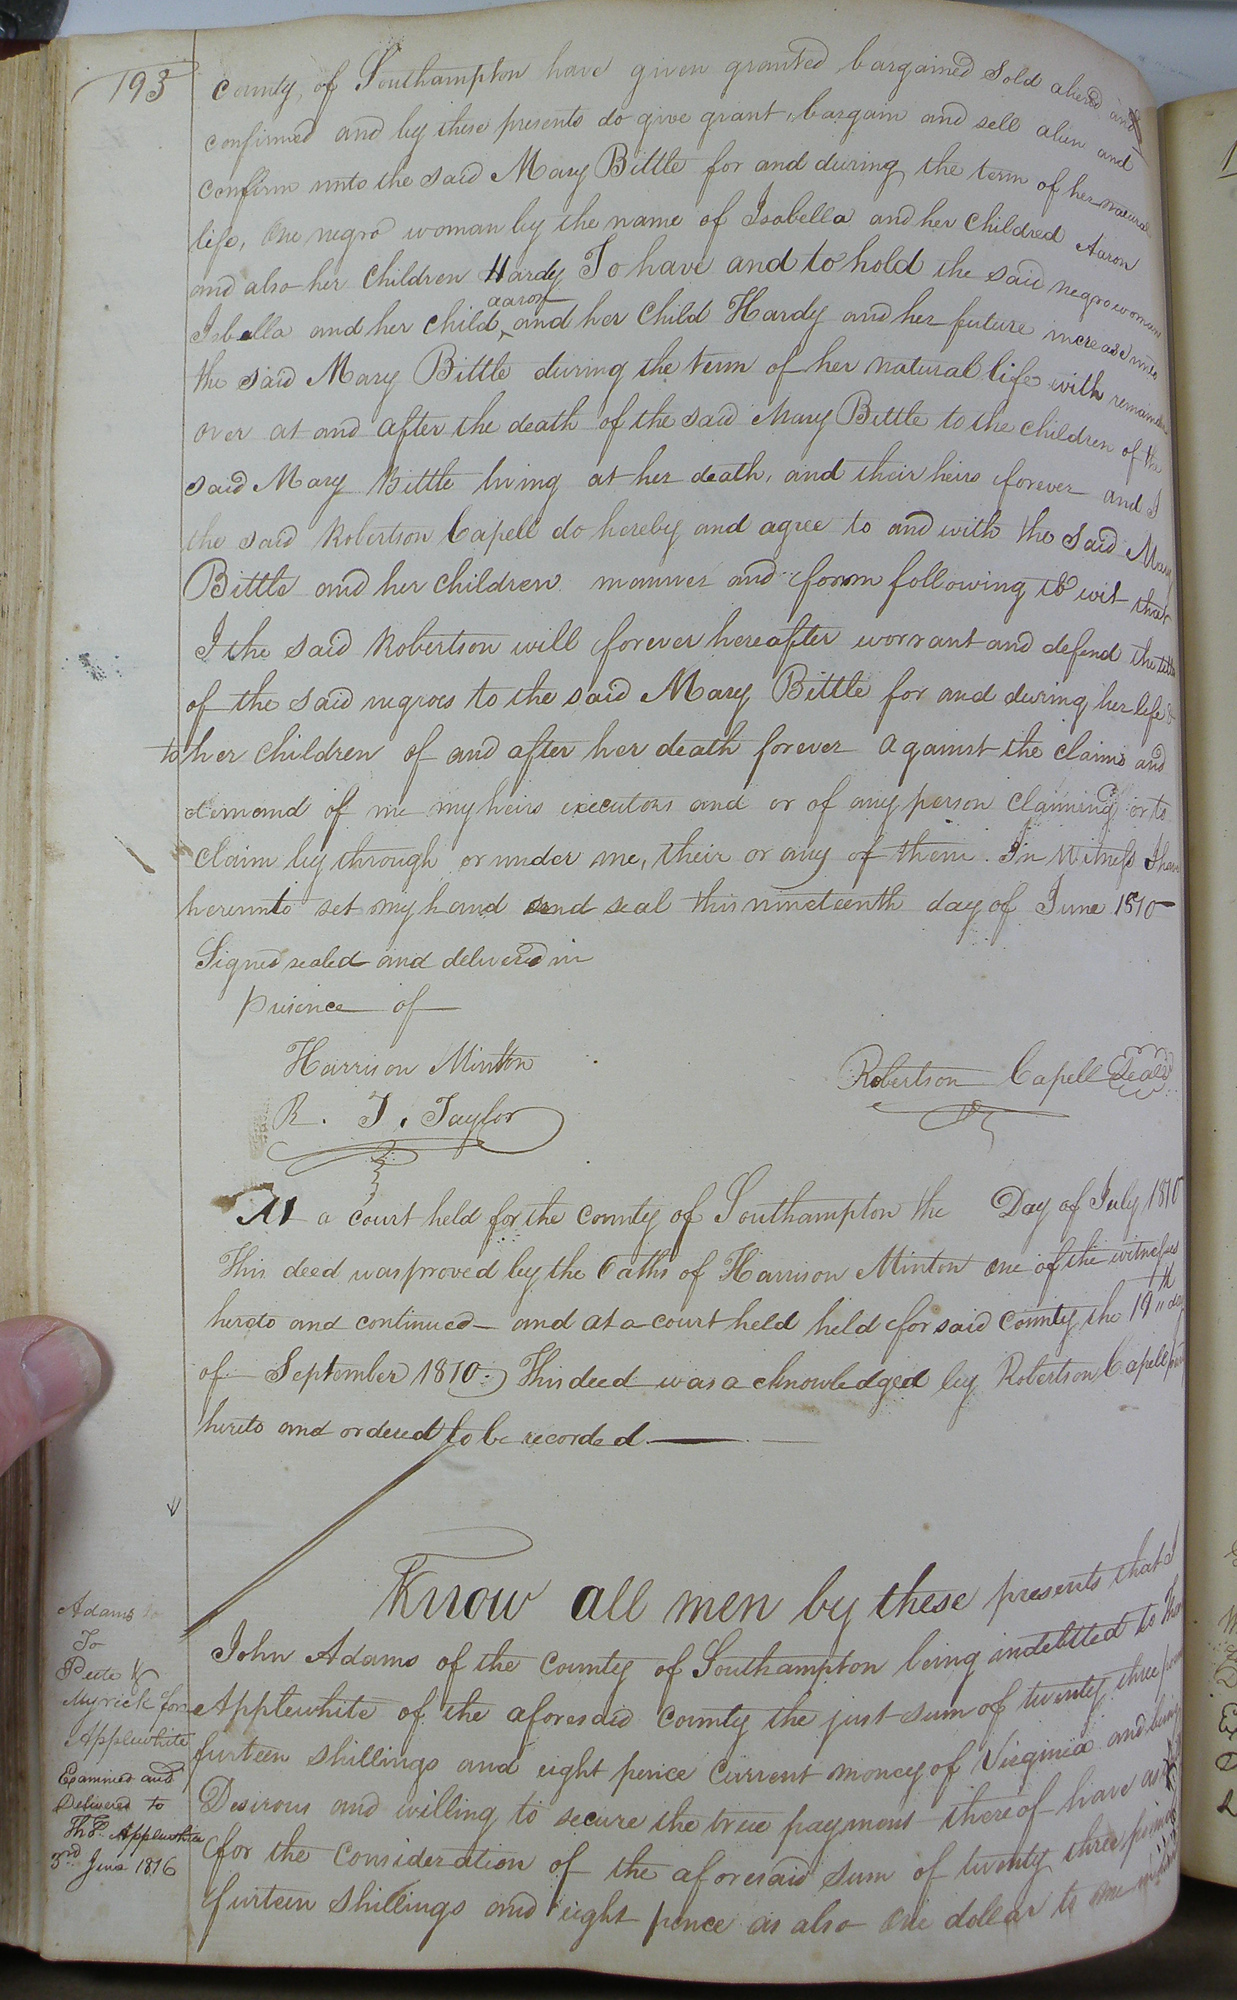 193
County of Southampton have given granted bargained Sold aliend and
confirmed and by these presents do give grant, bargain and sell alien and
confirm unto the said Mary Bittle for and during the term of her natural
life, One negro woman by the name of Isabella and her Childred Aaron
and also her Children Hardy To have and to hold the said negro woman
aaron
Isbella and her Child, and her Child Hardy and her future increase unto
the said Mary Bittle during the term of her natural life with remainder
over at and after the death of the said Mary Bittle to the children of the
said Mary Bittle living at her death, and their heirs forever and I
the said Robertson Capell do hereby and agree to and with the Said Mary
Bittle and her Children manner and form following to wit that
I the said Robertson will forever hereafter worrant and defend the title
of the said negroes to the said Mary Bittle for and during her life &
to her Children of and after her death forever against the claims and
demand of me my heirs executors and or of any person Claiming or to
Claim by through or under me, their or any of them. In Witness I have
hereunto set my hand and seal this nineteenth day of June 1810
Signed sealed and delivered in
presence of
Harrison Minton
Robertson Capell Seal
R. J. Taylor
At a court held for the County of Southampton the Day of July 1810
This deed was proved by the Oaths of Harrison Minton one of the witnesses
hereto and continued and at a court held held for said County the 19th day
of September 1810. This deed was acknowledged by Robertson Capell party
hereto and ordered to be recorded
Know all men by these presents that I
John Adams of the County of Southampton being indebtted to
Applewhite of the aforesaid County the just sum of twenty three
furteen shillings and eight pence Current money of Virginia and being
Desirous and willing to secure the true payment thereof have as
for the Consideration of the aforesaid sum of twenty three pounds
furteen shillings and eight pence as also one dollar to me in
Adams
To
Peete &
Myrick for
Applewhite
Examined and
Delivered to
Th P. Applewhite
3rd June 1816